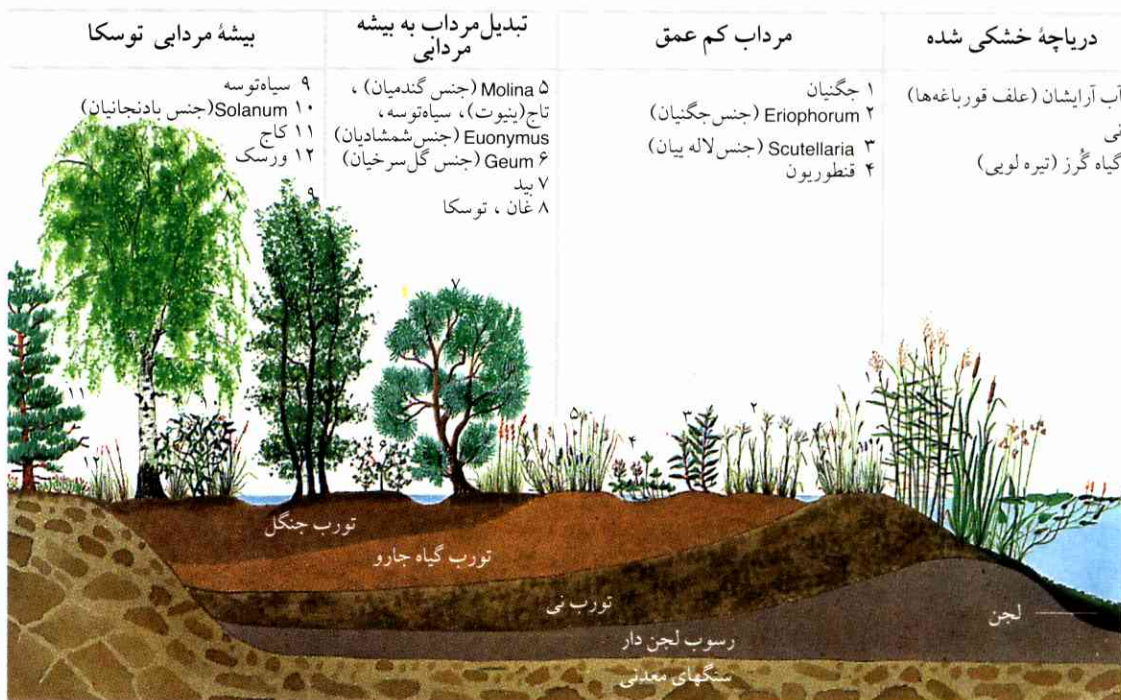 دریاچهٔ خشکی شده
آب آرایشان (علف قورباغه‌ها)
نی
گیاه گُرز (تیره لویی)
مرداب کم عمق
۱ جگنیان
۲ Eriophorum (جنس‌جگنیان)
۳ Scutellaria (جنس‌لاله ییان)
۴ قنطوریون
تبدیل‌مرداب به بیشه
مردابی
۵ Molina (جنس گندمیان) ،
تاج(ینیوت)، سیاه‌توسه،
Euonymus (جنس‌شمشادیان)
۶ Geum (جنس گل‌سرخیان)
۷ بید
۸ غان ، توسکا
بیشهٔ مردابی توسکا
۹ سیاه‌توسه
۱۰ Solanum(جنس بادنجانیان)
۱۱ کاج
۱۲ ورسک
۸
۹
۷
۱۱
۱۲
۱۰
۶
۵
۴
۳
۲
۱
تورب جنگل
تورب گیاه جارو
تورب نی
لجن
رسوب لجن دار
سنگهای معدنی